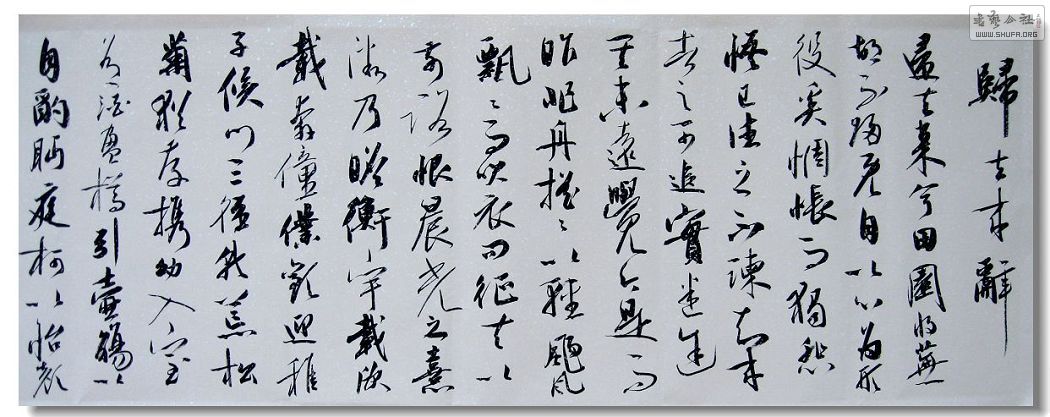 歸去来辭
歸去来兮田園將蕪
胡不歸既自以心為形
役奚惆悵而獨愁
悟已往之不諫知来
者之可追實迷途
其未遠覺今是而
昨非舟搖〻以輕颺風
飄〻而吹衣問征夫以
前路恨晨光之熹
微乃瞻衡宇載欣
載奔僮僕歡迎稚
子候門三徑就荒松
菊猶存攜幼入室
有酒盈樽引壺觴以
自酌眄庭柯以怡顏
WWW.SHUFA.ORG